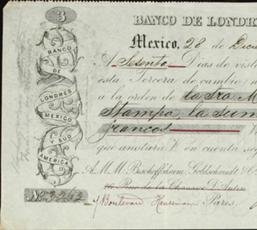 3
BANCO DE LONDRE
BANCO
DE
LONDRES
MEXICO
Y SUD
AMERICA
Mexico, 28 de Dici
A Sesenta Dias de vista
esta Tercera de cambio, n
a la orden de la Sra. M
Stampa, la sum
francos
que anotará V. en cuenta seg
A.M.M. Bischoffsheim, Goldschmidt & C
Rue de la Chaussée d'Antin
Boulevard Haussman Paris.